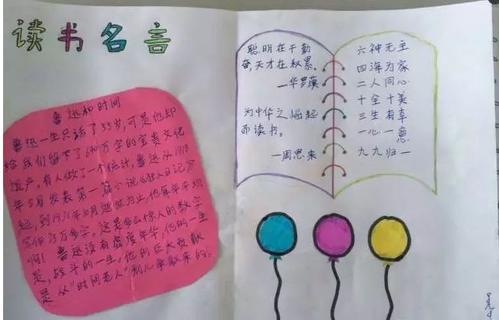 读书名言
鲁迅和时间
鲁迅一生只活了55岁,可是他却
给我们留下了640万字的宝贵文化
遗产。有人做了一个统计,鲁迅从1918
年5月发表第一篇小说《狂人日记》
起,到1936年10月逝世为止,他每年平均
写作35万多字。这是多么惊人的数字
啊!鲁迅没有虚度年华,他的一生
是战斗的一生,他的巨大贡献
是从“时间老人”那儿争取来的。
聪明在于勤
奋,天才在积累。
—华罗庚
为中华之崛起
而读书。
—周恩来
六神无主
四海为家
二人同心
十全十美
三生有幸
一心一意
九九归一